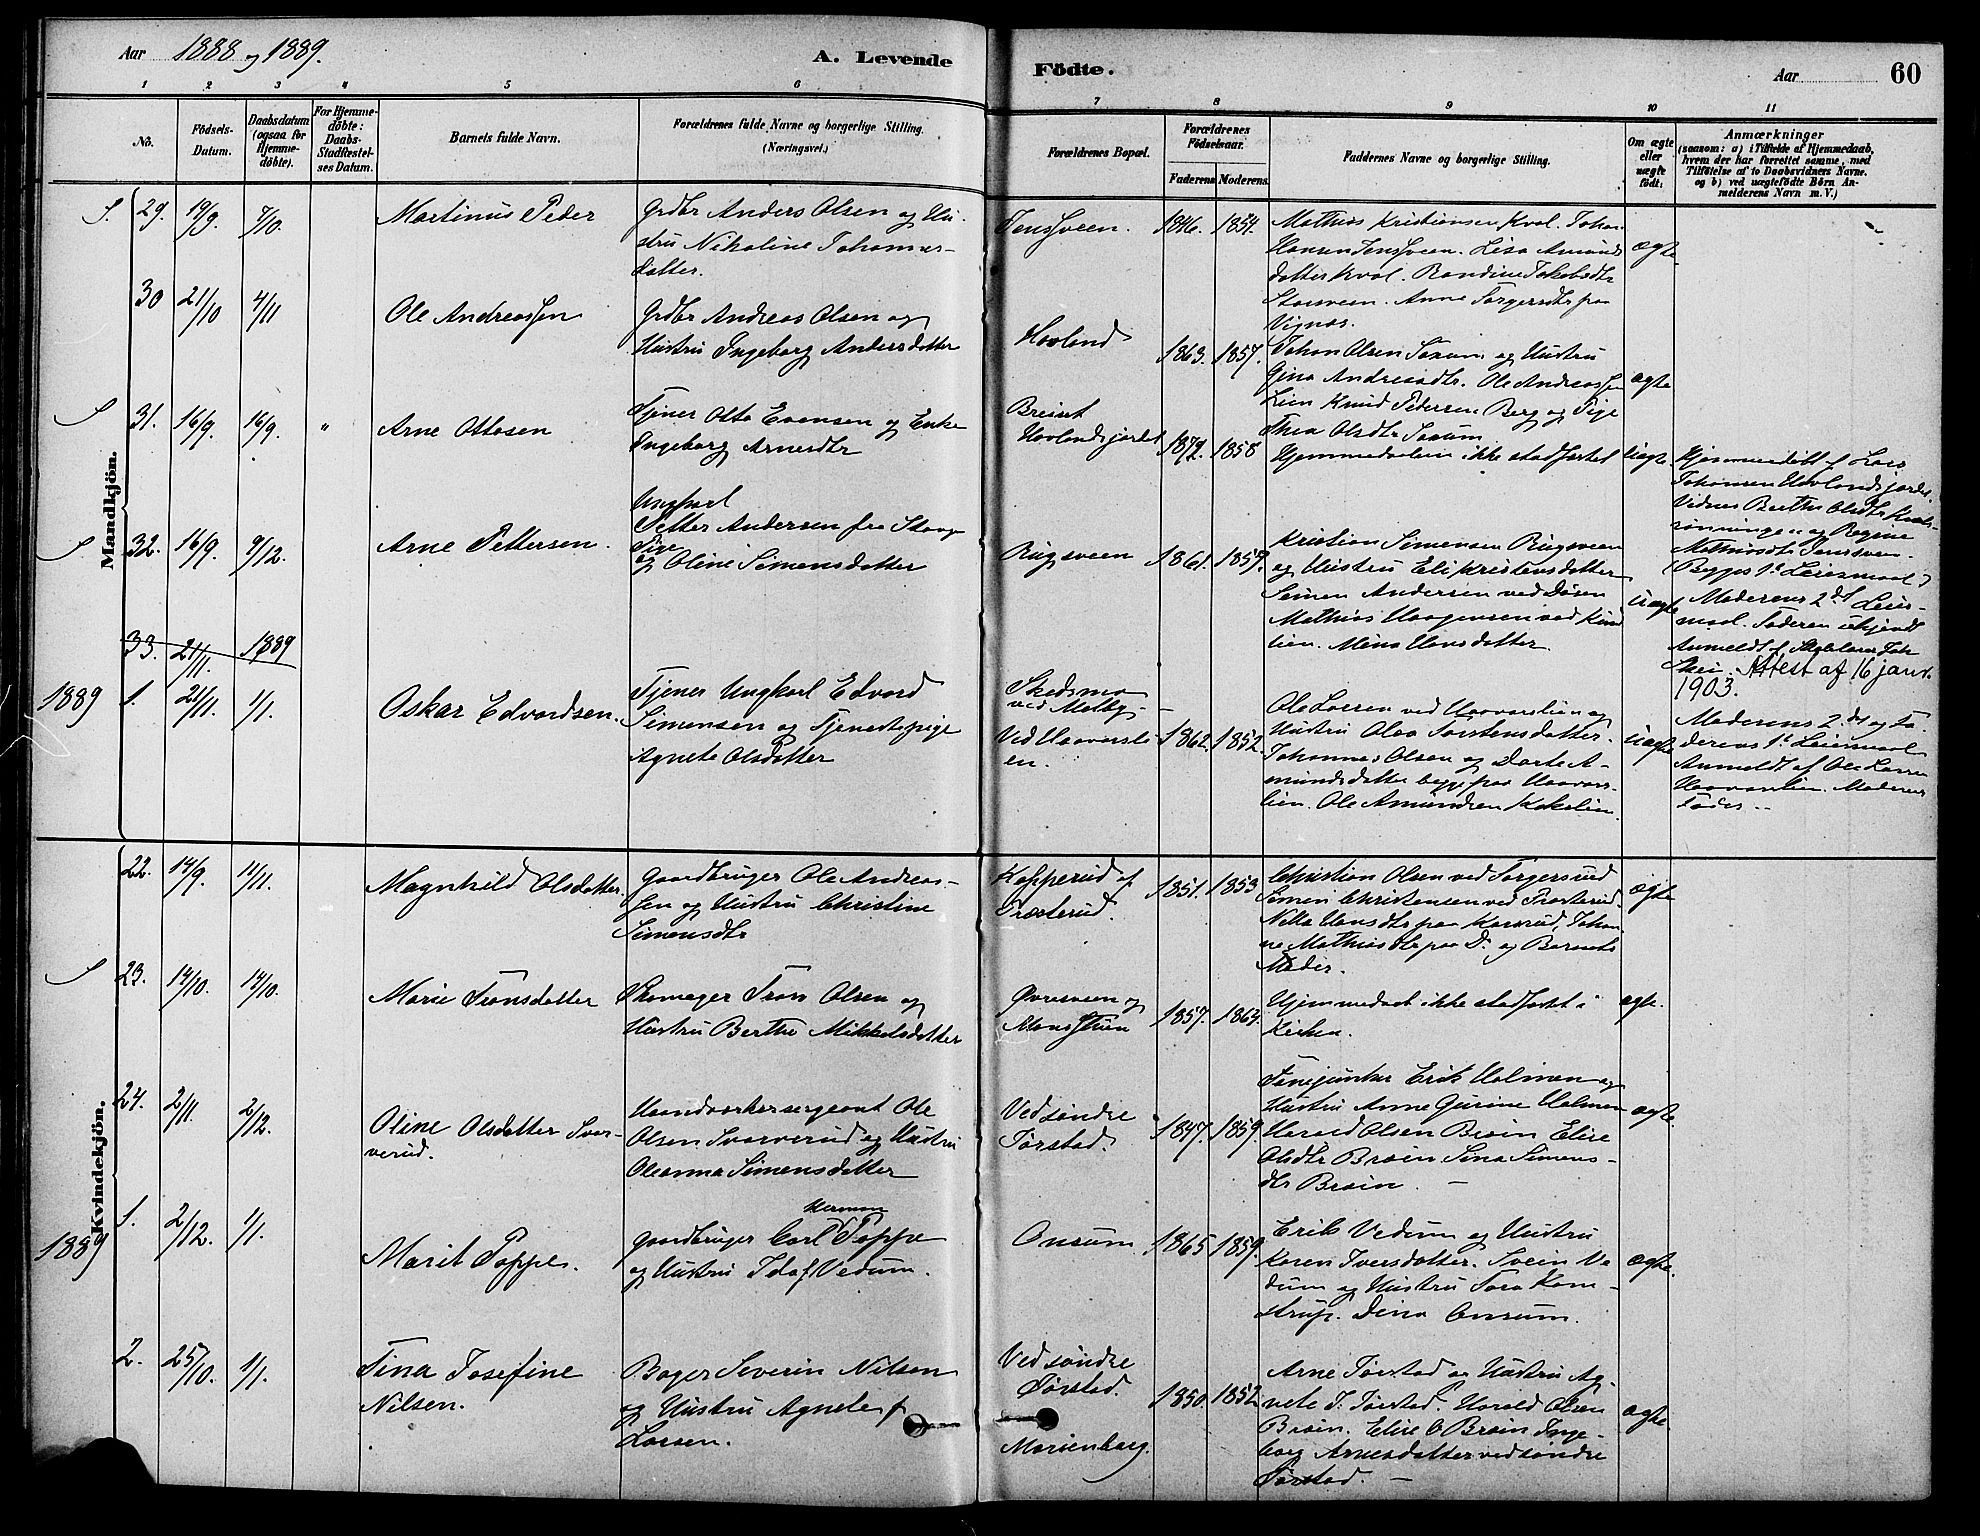 Aar 1888 og 1889.
A. Levende
Födte.
Aar
60
1 2 3 4 5 6 7 8 9 10 11
No.
Födsels-
Datum.
Daabsdatum
(ogsaa for
Hjemme-
döbte).
For Hjemme-
döbte:
Daabs-
Stadfæstel-
ses Datum.
Barnets fulde Navn.
Forældrenes fulde Navne og borgerlige Stilling.
(Næringsvei.)
Forældrenes Bopæl.
Forældrenes
Födselsaar.
Faderens Moderens
Faddernes Navne og borgerlige Stilling.
Om ægte
eller
uægte
födt.
Anmærkninger
(saasom: a) i Tilfælde af Hjemmedaab,
hvem der har forrettet samme, med
Tilföielse af to Daabsvidners Navne.
og b) ved uægtefödte Börn An-
melderens Navn m. V.)
Mandkjön.
S. 29. 19/9 7/10. Martinus Peder
Grdbr Anders Olsen og Hu-
stru Nikoline Johannes-
datter.
Jenssveen. 1846. 1854.
Mathias Kristiansen Kval. Johan
Hansen Jenssveen. Lisa Amunds
datter Kval. Randine Jakobsdtr
Storsveen. Anne Torgersdtr paa
Vignæs.
ægte
30 21/10 4/11 Ole Andreassen
Grdbr Andreas Olsen og
Hustru Ingeborg Andersdatter
Hovland 1863. 1857.
Johan Olsen Soxum og Hustru
Gina Andreasdtr. Ole Andreassen
Lien Knud Petersen Berg og Pige
Thea Olsdtr Soxum
ægte
S 31. 16/9. 16/9. " Arne Ottosen
Tjener Otto Evensen og Enke
Ingeborg Arnesdtr
Breiset
Hovlandsjordet 1872. 1858
Hjemmedaaben ikke stadfæstet
Uægte.
Hjemmedöbt af Lars
Johansen Hovlandsjordet.
Vidner Berthe Olsdtr Kval-
rønningen og Regine
Mathiasdtr Jenssveen.
(Begges 1ste Leiermaal)
S 32. 16/9. 9/12. Arne Pettersen.
Ungkarl
Petter Andersen fra Stange
Pige
og Oline Simensdatter
Rugsveen 1861. 1857.
Kristian Simensen Rugsveen
og Hustru Eli Kristensdatter
Simen Andersen ved Døsen
Mathias Haagensen ved Kind
lien. Mina Hansdatter.
Uægte
Moderens 2det Leier-
maal. Faderen ukjendt
Anmeldt af
Attest af 16 janr.
1903.
33. 21/11. 1889
1889 1. 21/11. 1/1. Oskar Edvardsen.
Tjener Ungkarl Edvard
Simensen og Tjenestepige
Agnete Olsdatter
Skedsmo
ved Melby -
Ved Haaversli-
en. 1862. 1852.
Ole Larsen ved Haaverslien og
Hustru Olea Torstensdatter.
Johannes Olsen og Dorte A-
mundsdatter begge paa Haavers-
lien. Ole Amundsen Kokslien.
Uægte
Moderens 2det og Fa-
derens 1ste Leiermaal
Anmeldt af Ole Larsen
Haaverslien. Moderens
Fader. -
Kvindekjön.
22. 14/9. 11/11. Magnhild Olsdatter.
Gaardbruger Ole Andreas-
sen og Hustru Christine
Simensdtr
Kopperud af
Præsterud. 1851. 1853
Christian Olsen ved Torgersrud
Simen Christensen ved Præsterud.
Nilla Hansdtr paa Korsrud, Johan-
ne Mathiasdtr paa Do. og Barnets
Moder.
ægte
S 23. 14/10. 14/10. Marie Tronsdatter
Skomager Tron Olsen og
Hustru Berthe Mikkelsdatter
Øvresveen og
Monsstuen 1857. 1863.
Hjemmedøbt ikke stadfæstet i
Kirken.
ægte.
24. 2/11. 2/12. Oline Olsdatter Svar-
verud.
Haandværkersergeant Ole
Olsen Svarverud og Hustru
Oleanna Simensdatter
Ved søndre
Tørstad. 1847. 1859.
Fanejunker Erik Holmen og
Hustru Anne Gurine Holmen
Harald Olsen Bræin Elise
Olsdtr Bræin Sina Simens-
dtr Bræin. -
ægte
1889 1. 2/12. 1/1. Marit Poppes.
Gaardbruger Carl Herman Poppe
og Hustru Ida f. Vedum.
Onsum 1865 1859.
Erik Vedum og Hustru
Karen Iversdatter. Svein Ve-
dum og Hustru Tora Kom-
strup. Dina Onsum.
ægte.
2. 25/10. 1/1. Tina Josefine
Nilsen.
Bager Severin Nilsen
og Hustru Agnete f.
Larsen.
Ved søndre
Tørstad.
Marienborg. 1850. 1852
Arne Tørstad og Hustru Ag-
nete T. Tørstad. Harald Olsen
Bræin. Elise O Bræin Inge-
borg Arnesdatter ved søndre
Tørstad. -
ægte.